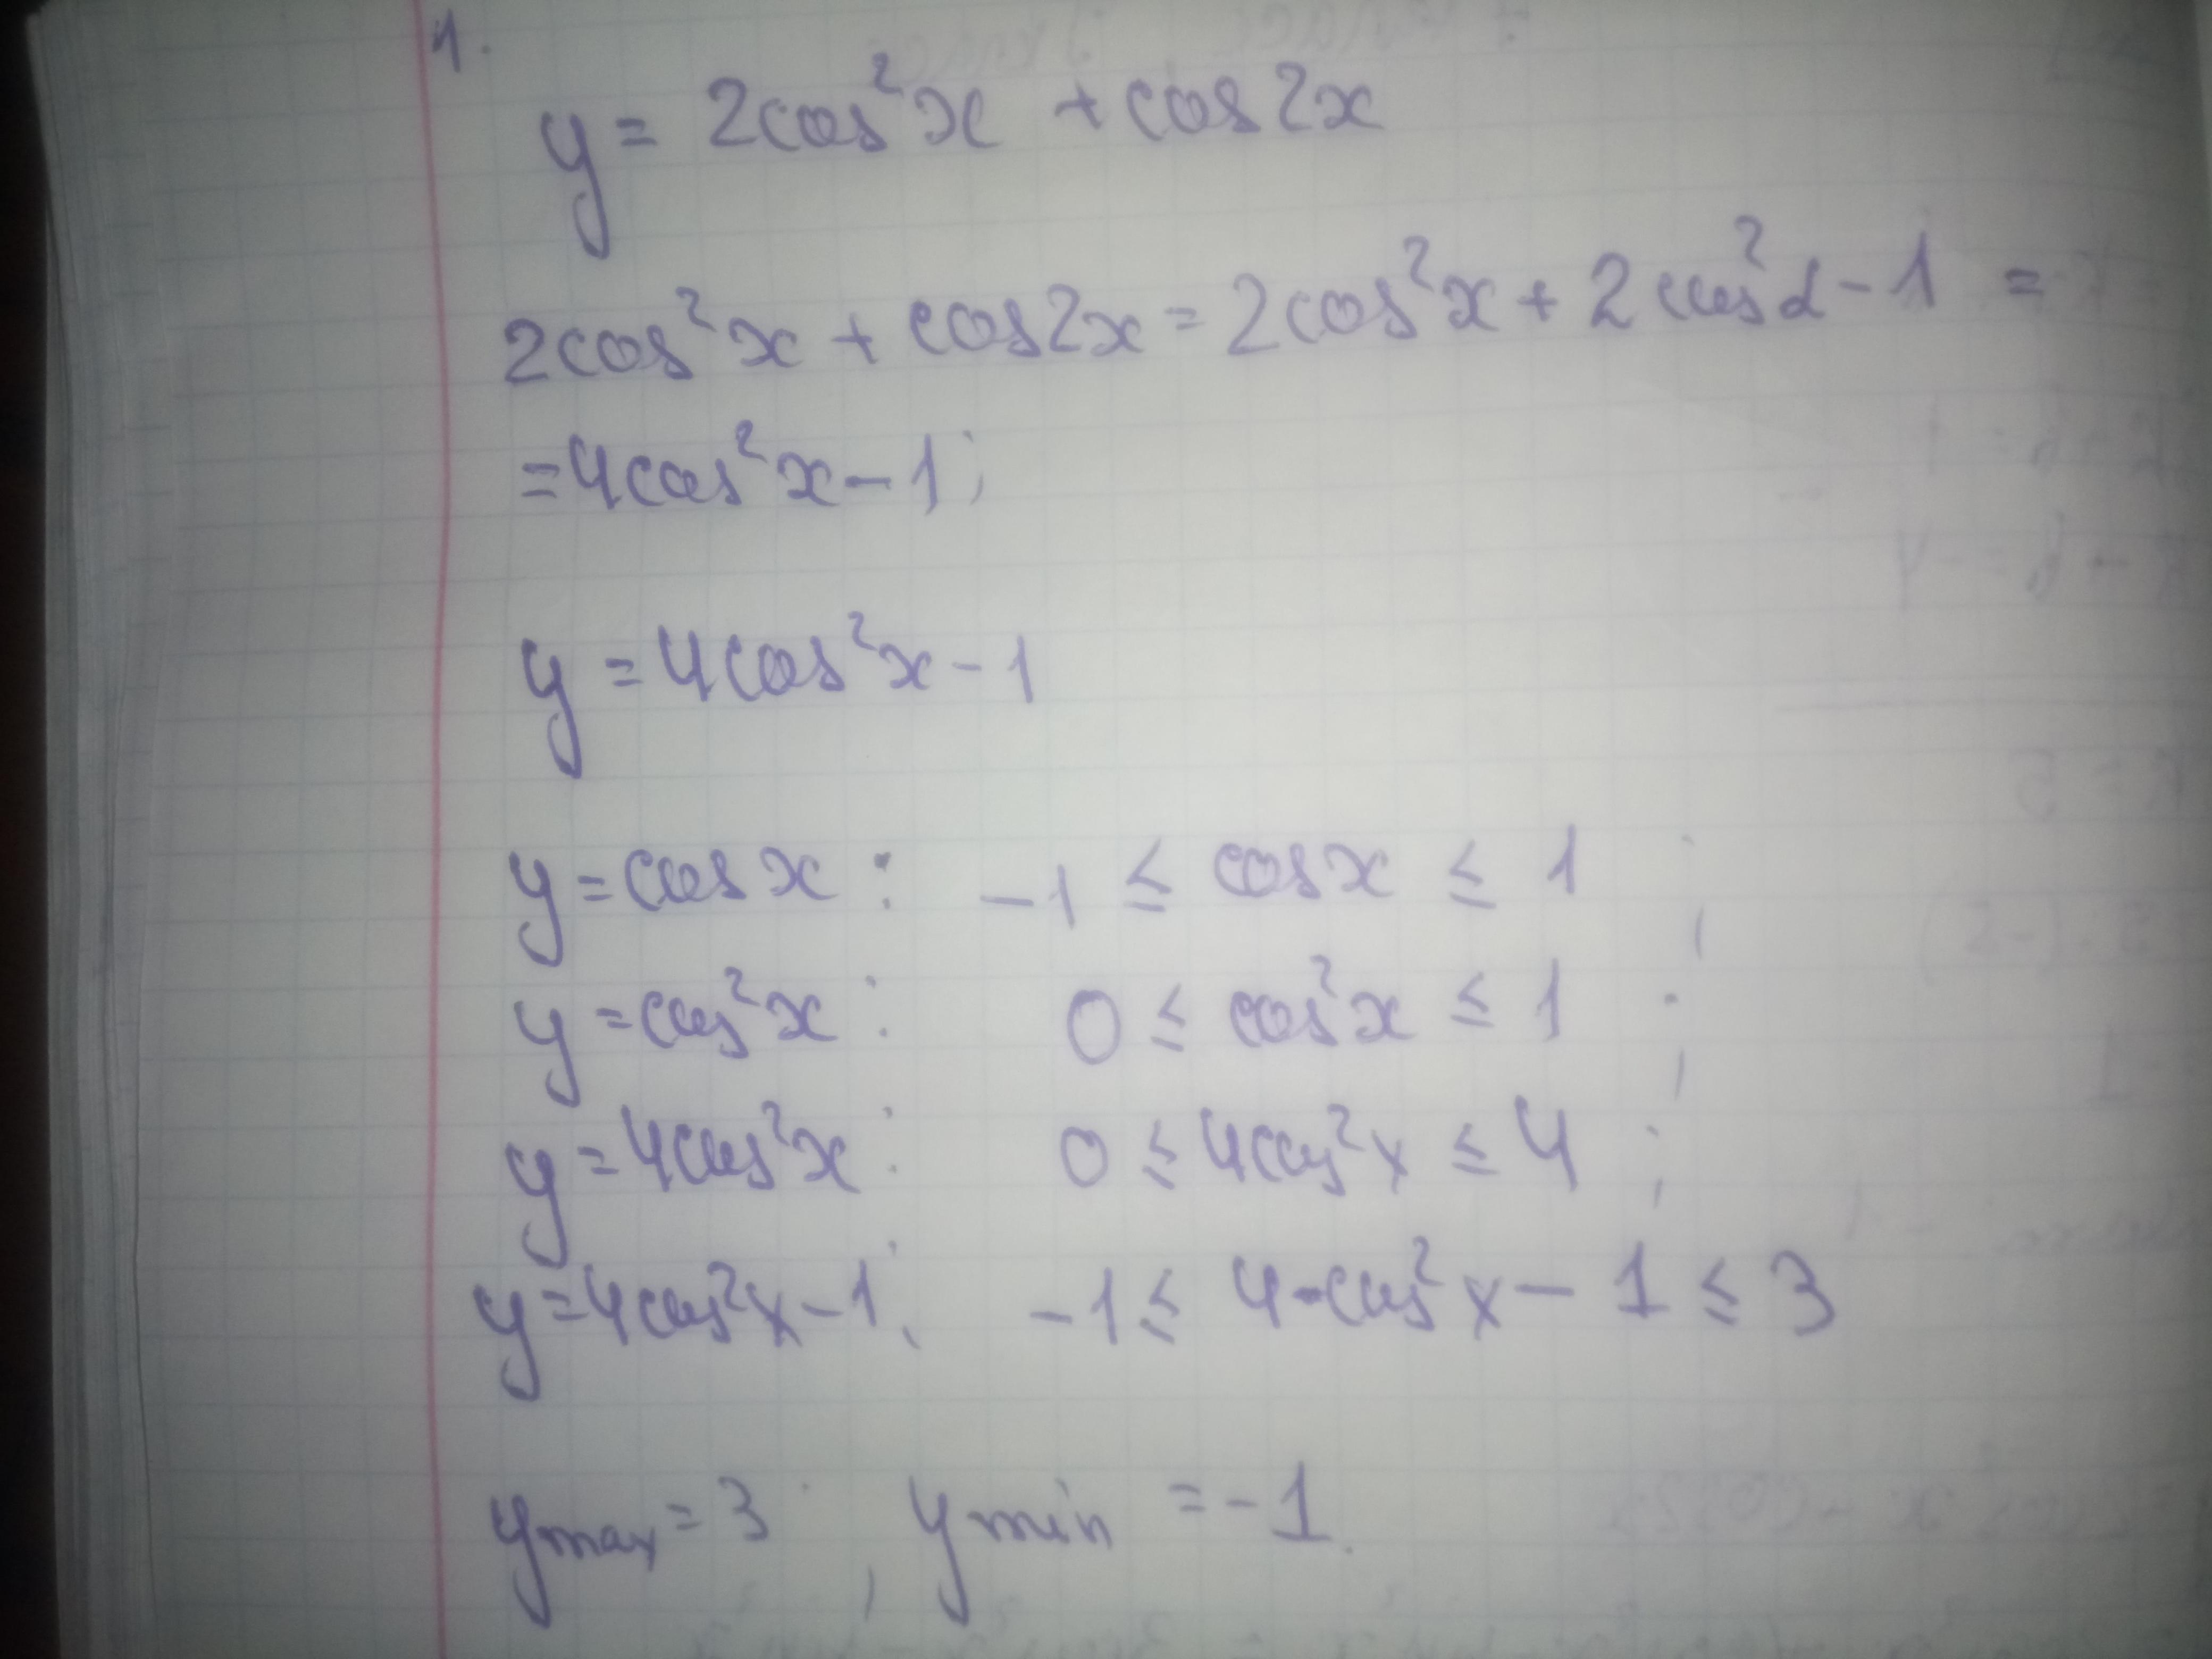 1.
y = 2cos²x + cos2x
2cos²x + cos2x = 2cos²x + 2cos²α - 1 =
= 4cos²x - 1;
y = 4cos²x - 1
y = cosx : -1 ≤ cosx ≤ 1 ;
y = cos²x : 0 ≤ cos²x ≤ 1 ;
y = 4cos²x : 0 ≤ 4cos²x ≤ 4 ;
y = 4cos²x - 1: -1 ≤ 4·cos²x - 1 ≤ 3
ymax = 3 ; ymin = -1.